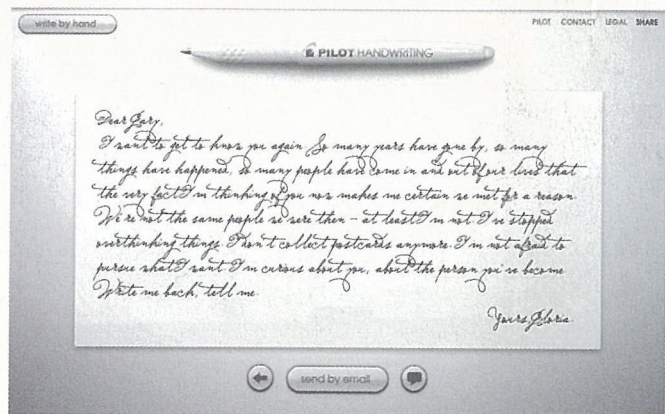 write by hand
PILOT CONTACT LEGAL SHARE
PILOT HANDWRITING
Dear Gary,
I want to get to know you again. So many years have gone by, so many
things have happened, so many people have come in and out of our lives that
the very fact I'm thinking of you now makes me certain we met for a reason.
We're not the same people we were then – at least I'm not. I've stopped
overthinking things. I don't collect postcards anymore. I'm not afraid to
pursue what I want. I'm curious about you, about the person you've become.
Write me back, tell me.
Yours, Gloria
send by email